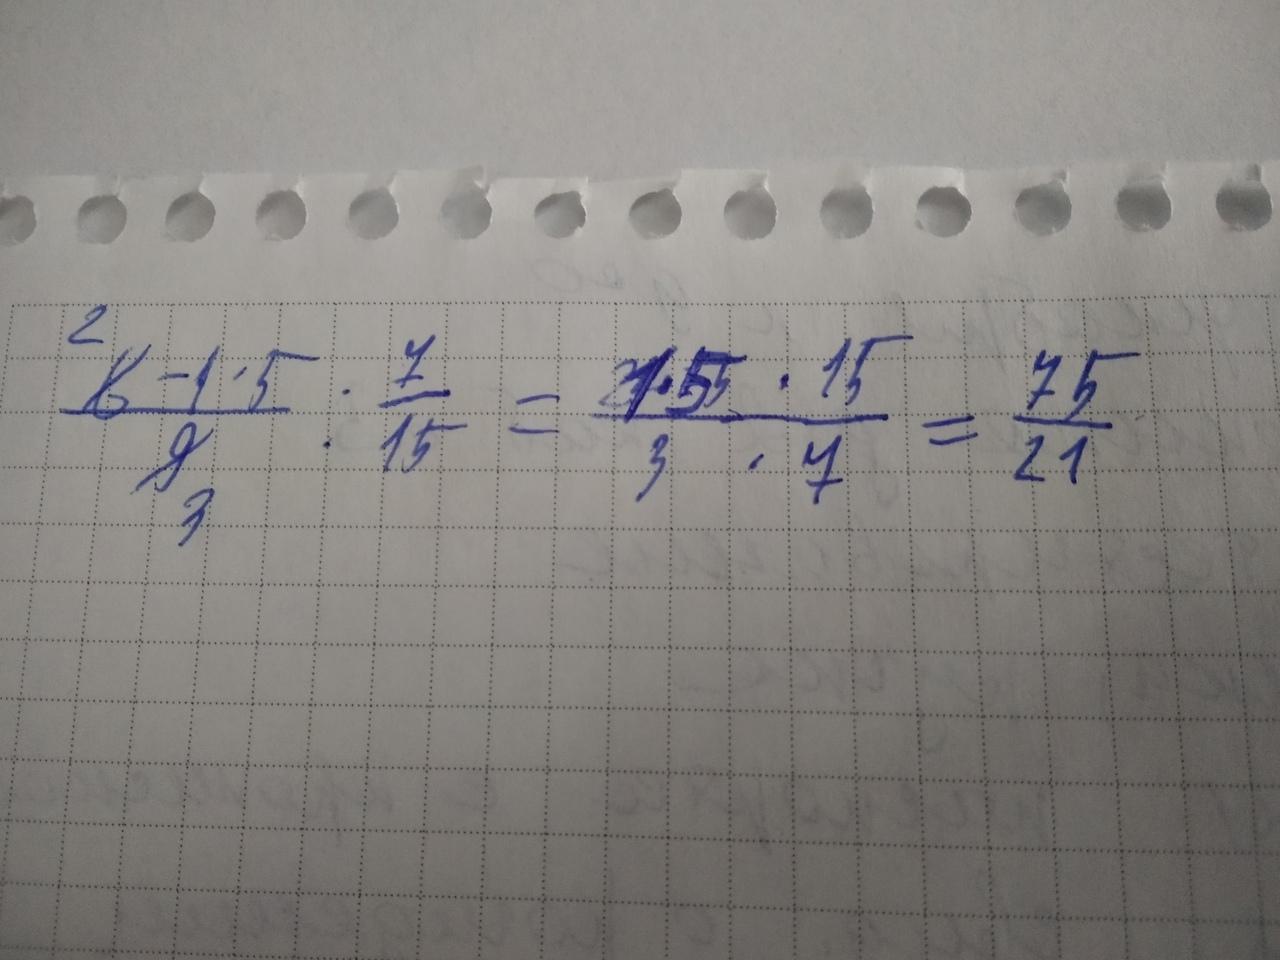 2
6-1·5/9 : 7/15 = 1·5 · 15/3 · 7 = 75/21
3